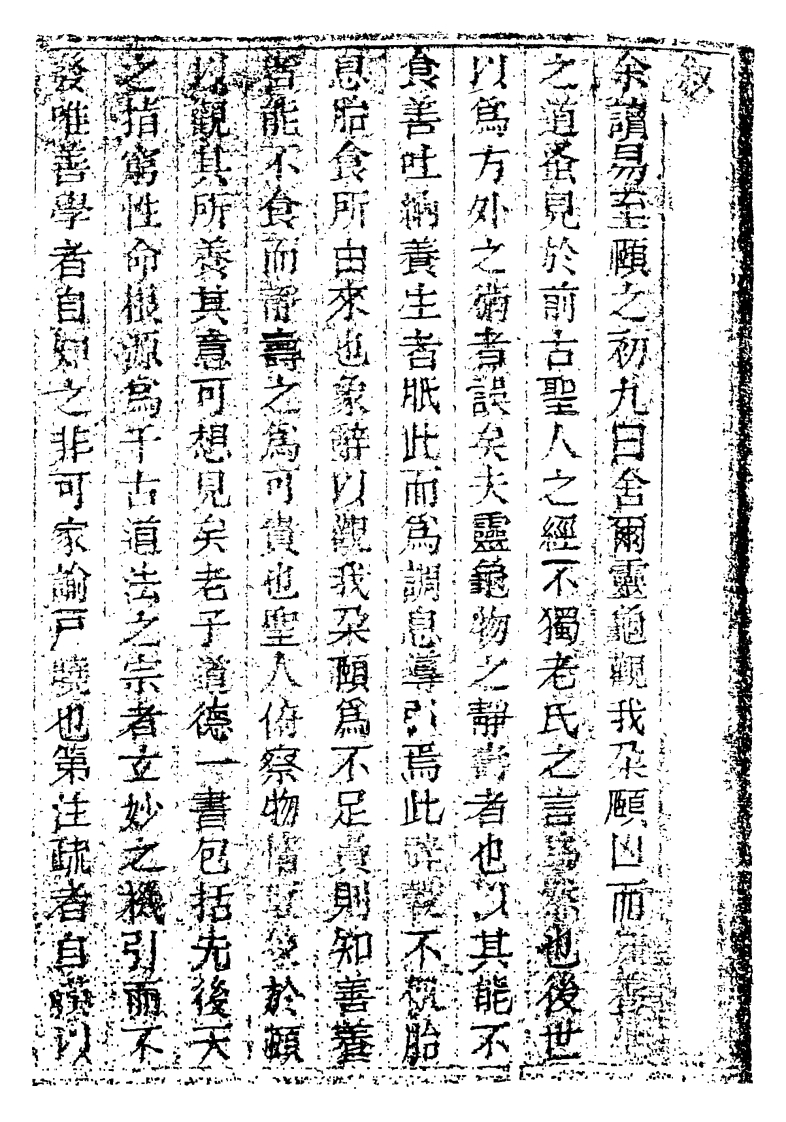 叙
余讀易至頤之初九曰舍爾靈龜觀我朵頤凶而知養
之道蚤見於前古聖人之經不獨老氏之言為然也後世
以爲方外之猶者誤矣夫靈龜物之靜壽者也以其能不
食善吐納養生者胝此而爲調息導引焉此辟穀不飢胎
息胎食所由來也象辭以觀我朵頤爲不足貴則知善養
者能不食而靜壽之爲可貴也聖人俯察物情於頤
以觀其所養其意可想見矣老子道德一書包括先後天
之指窮性命根源爲千古道法之宗者玄妙之機引而不
發唯善學者自知之非可家諭戶曉也第注疏者自以